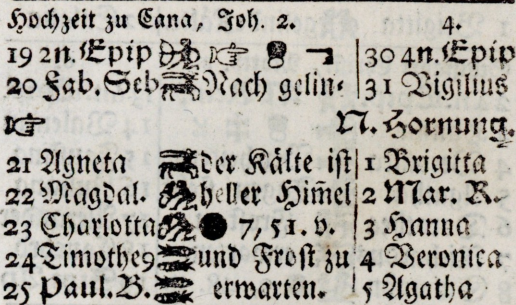 Hochzeit zu Cana, Joh. 2. 4.
19 2n. Epip 30 4n. Epip
20 Fab. Seb Nach gelin⸗ 31 Vigilius
N. Hornung.
21 Agneta der Kälte iſt 1 Brigitta
22 Magdal. heller Him̄el 2 Mar. R.
23 Charlotta ● 7, 51. v. 3 Hanna
24 Timothe9 und Froſt zu 4 Veronica
25 Paul. B. erwarten. 5 Agatha